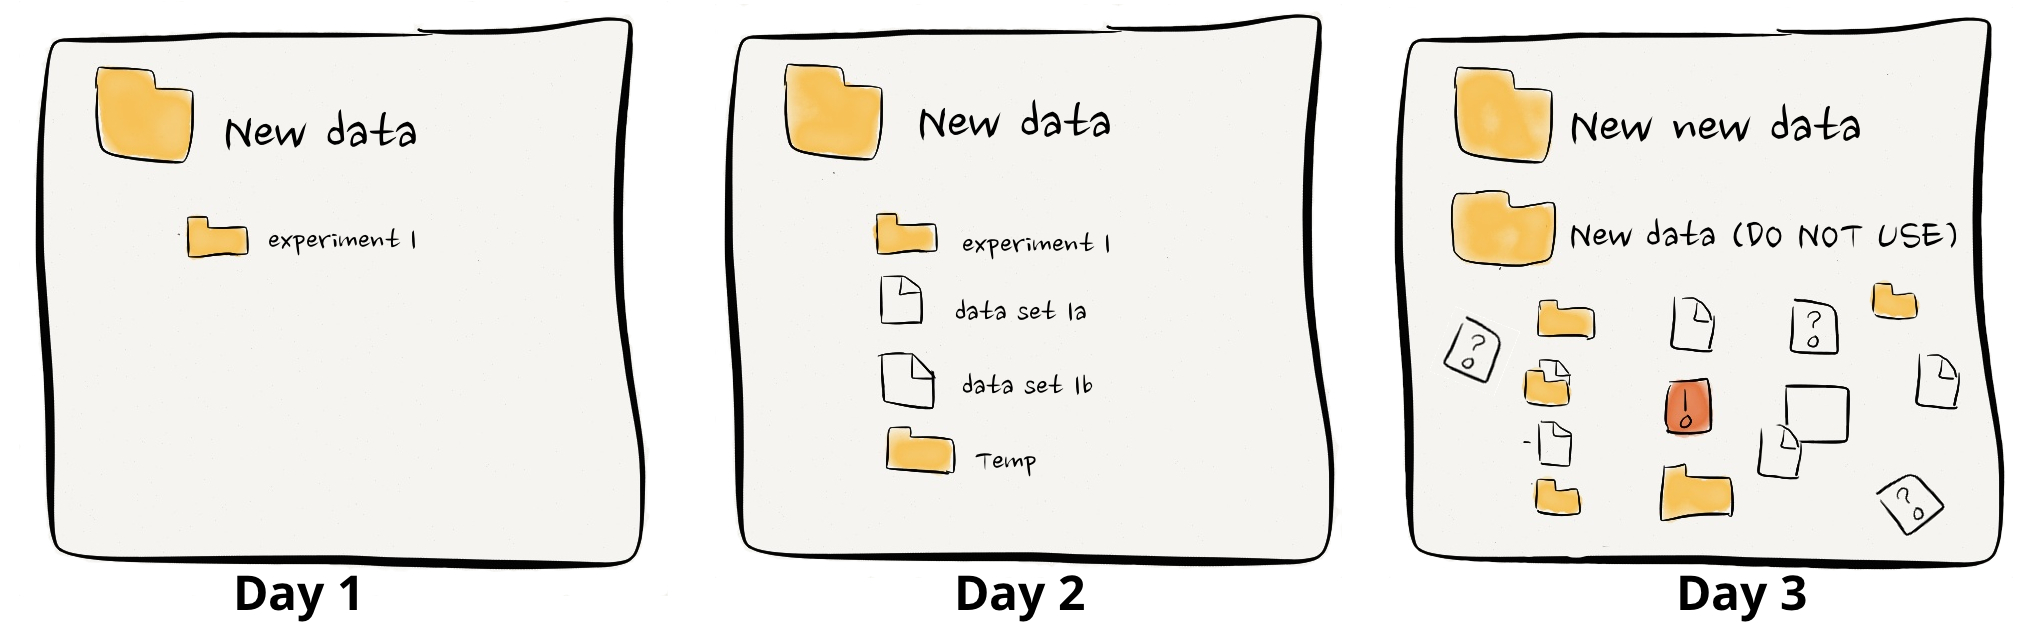 New data
experiment 1
Day 1
New data
experiment 1
data set 1a
data set 1b
Temp
Day 2
New new data
New data (DO NOT USE)
?
?
!
?
Day 3